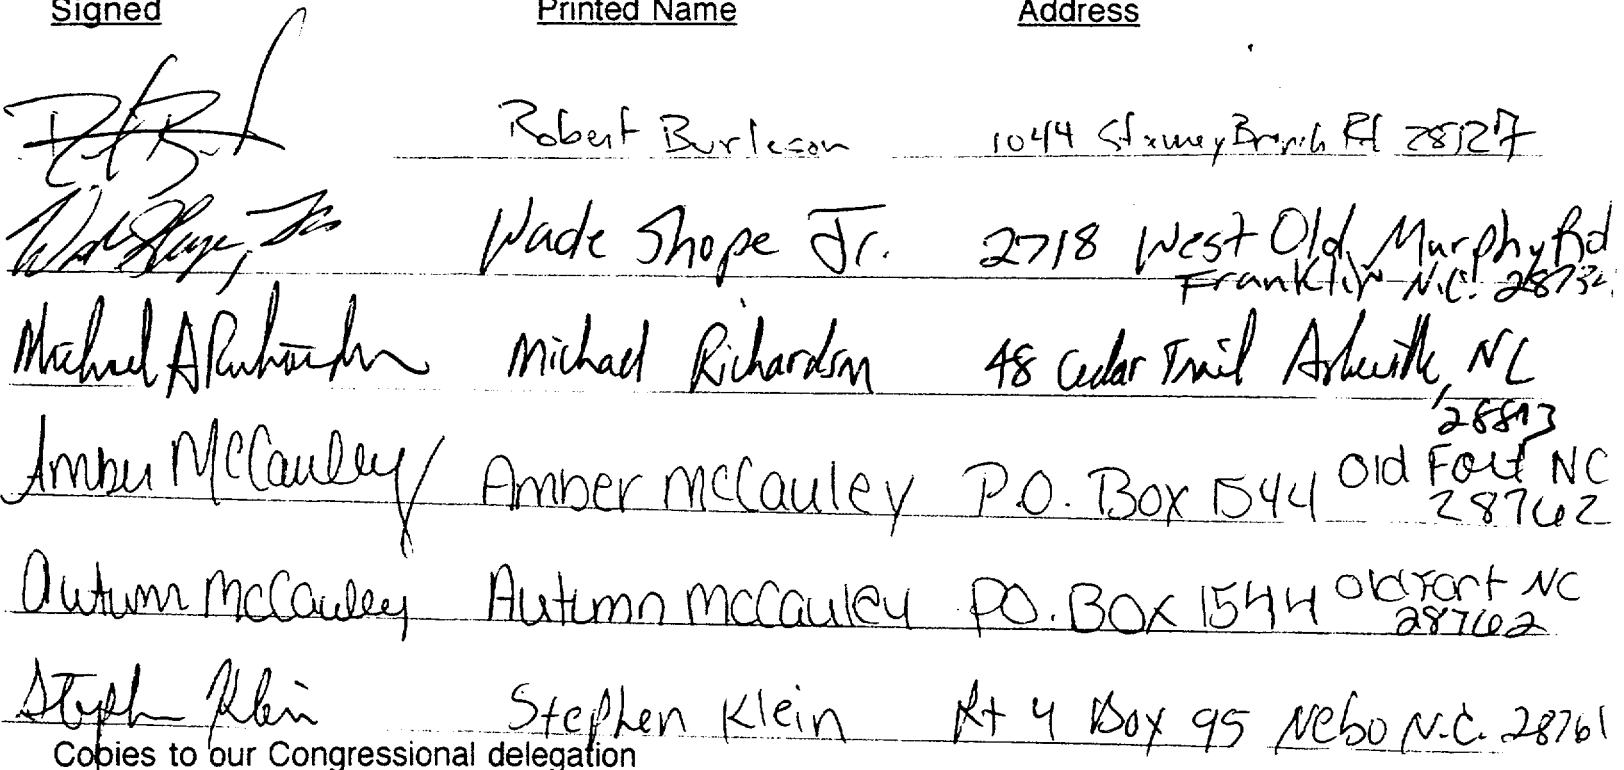 Signed Printed Name Address
Robert Burleson 1044 Branch Rd
Wade Shope, Jr Wade Shope Jr. 2718 West Old Murphy Rd
Franklin N.C. 28734
Michael A Richardson Michael Richardson 48 Cedar Trail Asheville, NC
28803
Amber McCauley Amber McCauley P.O. Box 1544 Old Fort NC
28762
Autumn McCauley Autumn McCauley P.O. Box 1544 Old Fort NC
28762
Stephen Klein Stephen Klein Rt 4 Box 95 Nebo N.C. 28761
Copies to our Congressional delegation